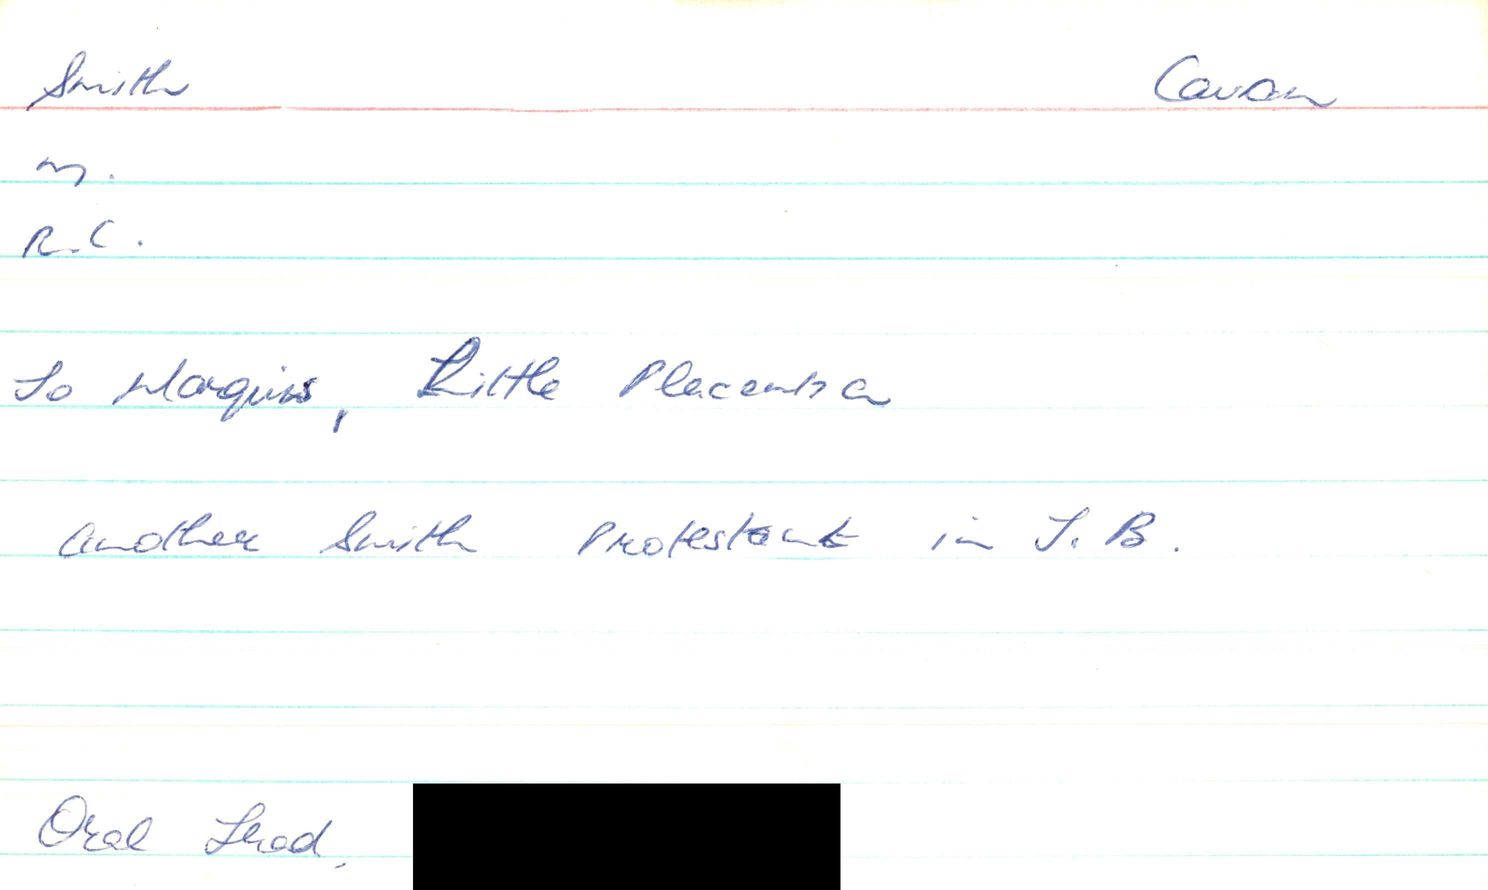 Smith Cavan
m.
R.C.
To Marquis, Little Placentia
another Smith Protestant in T. B.
Oral Trad.